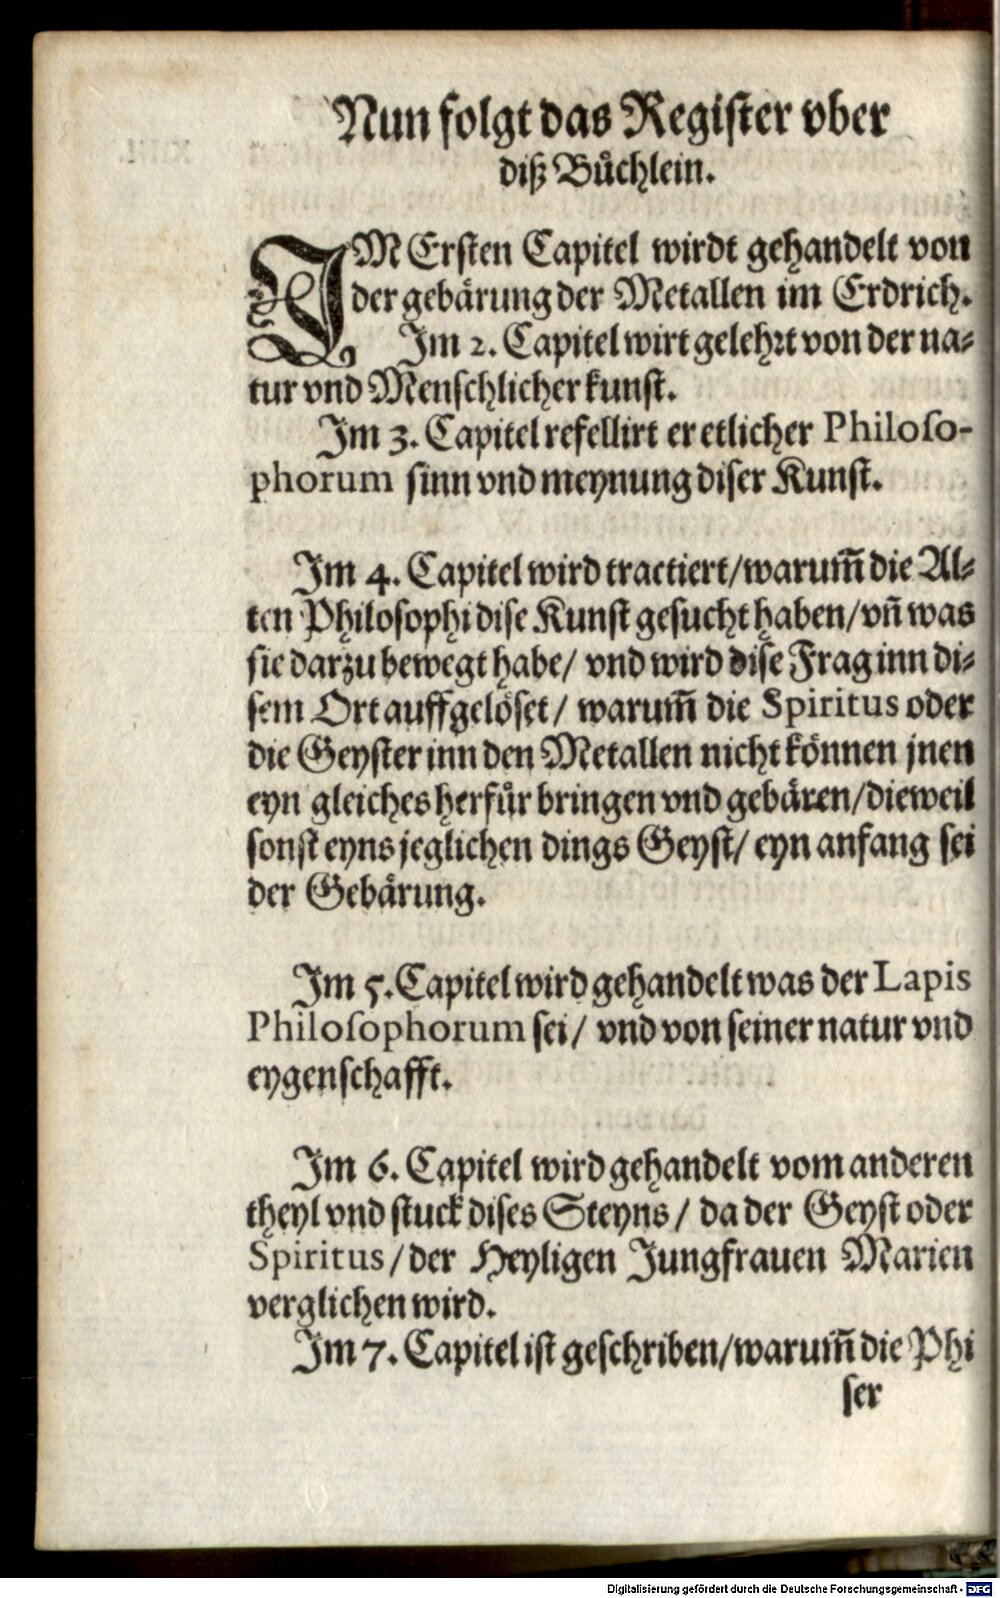 Nun folgt das Register vber
diß Bůchlein.
IM Ersten Capitel wirdt gehandelt von
der gebärung der Metallen im Erdrich.
Im 2. Capitel wirt gelehrt von der na⸗
tur vnd Menschlicher kunst.
Im 3. Capitel refellirt er etlicher Philoso-
phorum sinn vnd meynung diser Kunst.
Im 4. Capitel wird tractiert/ warum̃ die Al⸗
ten Philosophi dise Kunst gesucht haben/ vñ was
sie darzu bewegt habe/ vnd wird dise Frag inn di⸗
sem Ort auffgelöset/ warum̃ die Spiritus oder
die Geyster inn den Metallen nicht können jnen
eyn gleiches herfůr bringen vnd gebären/ dieweil
sonst eyns jeglichen dings Geyst/ eyn anfang sei
der Gebärung.
Im 5. Capitel wird gehandelt was der Lapis
Philosophorum sei/ vnd von seiner natur vnd
eygenschafft.
Im 6. Capitel wird gehandelt vom anderen
theyl vnd stuck dises Steyns/ da der Geyst oder
Spiritus/ der Heyligen Jungfrauen Marien
verglichen wird.
Im 7. Capitel ist geschriben/ warum̃ die Phi
ser
Digitalisierung gefördert durch die Deutsche Forschungsgemeinschaft - DFG